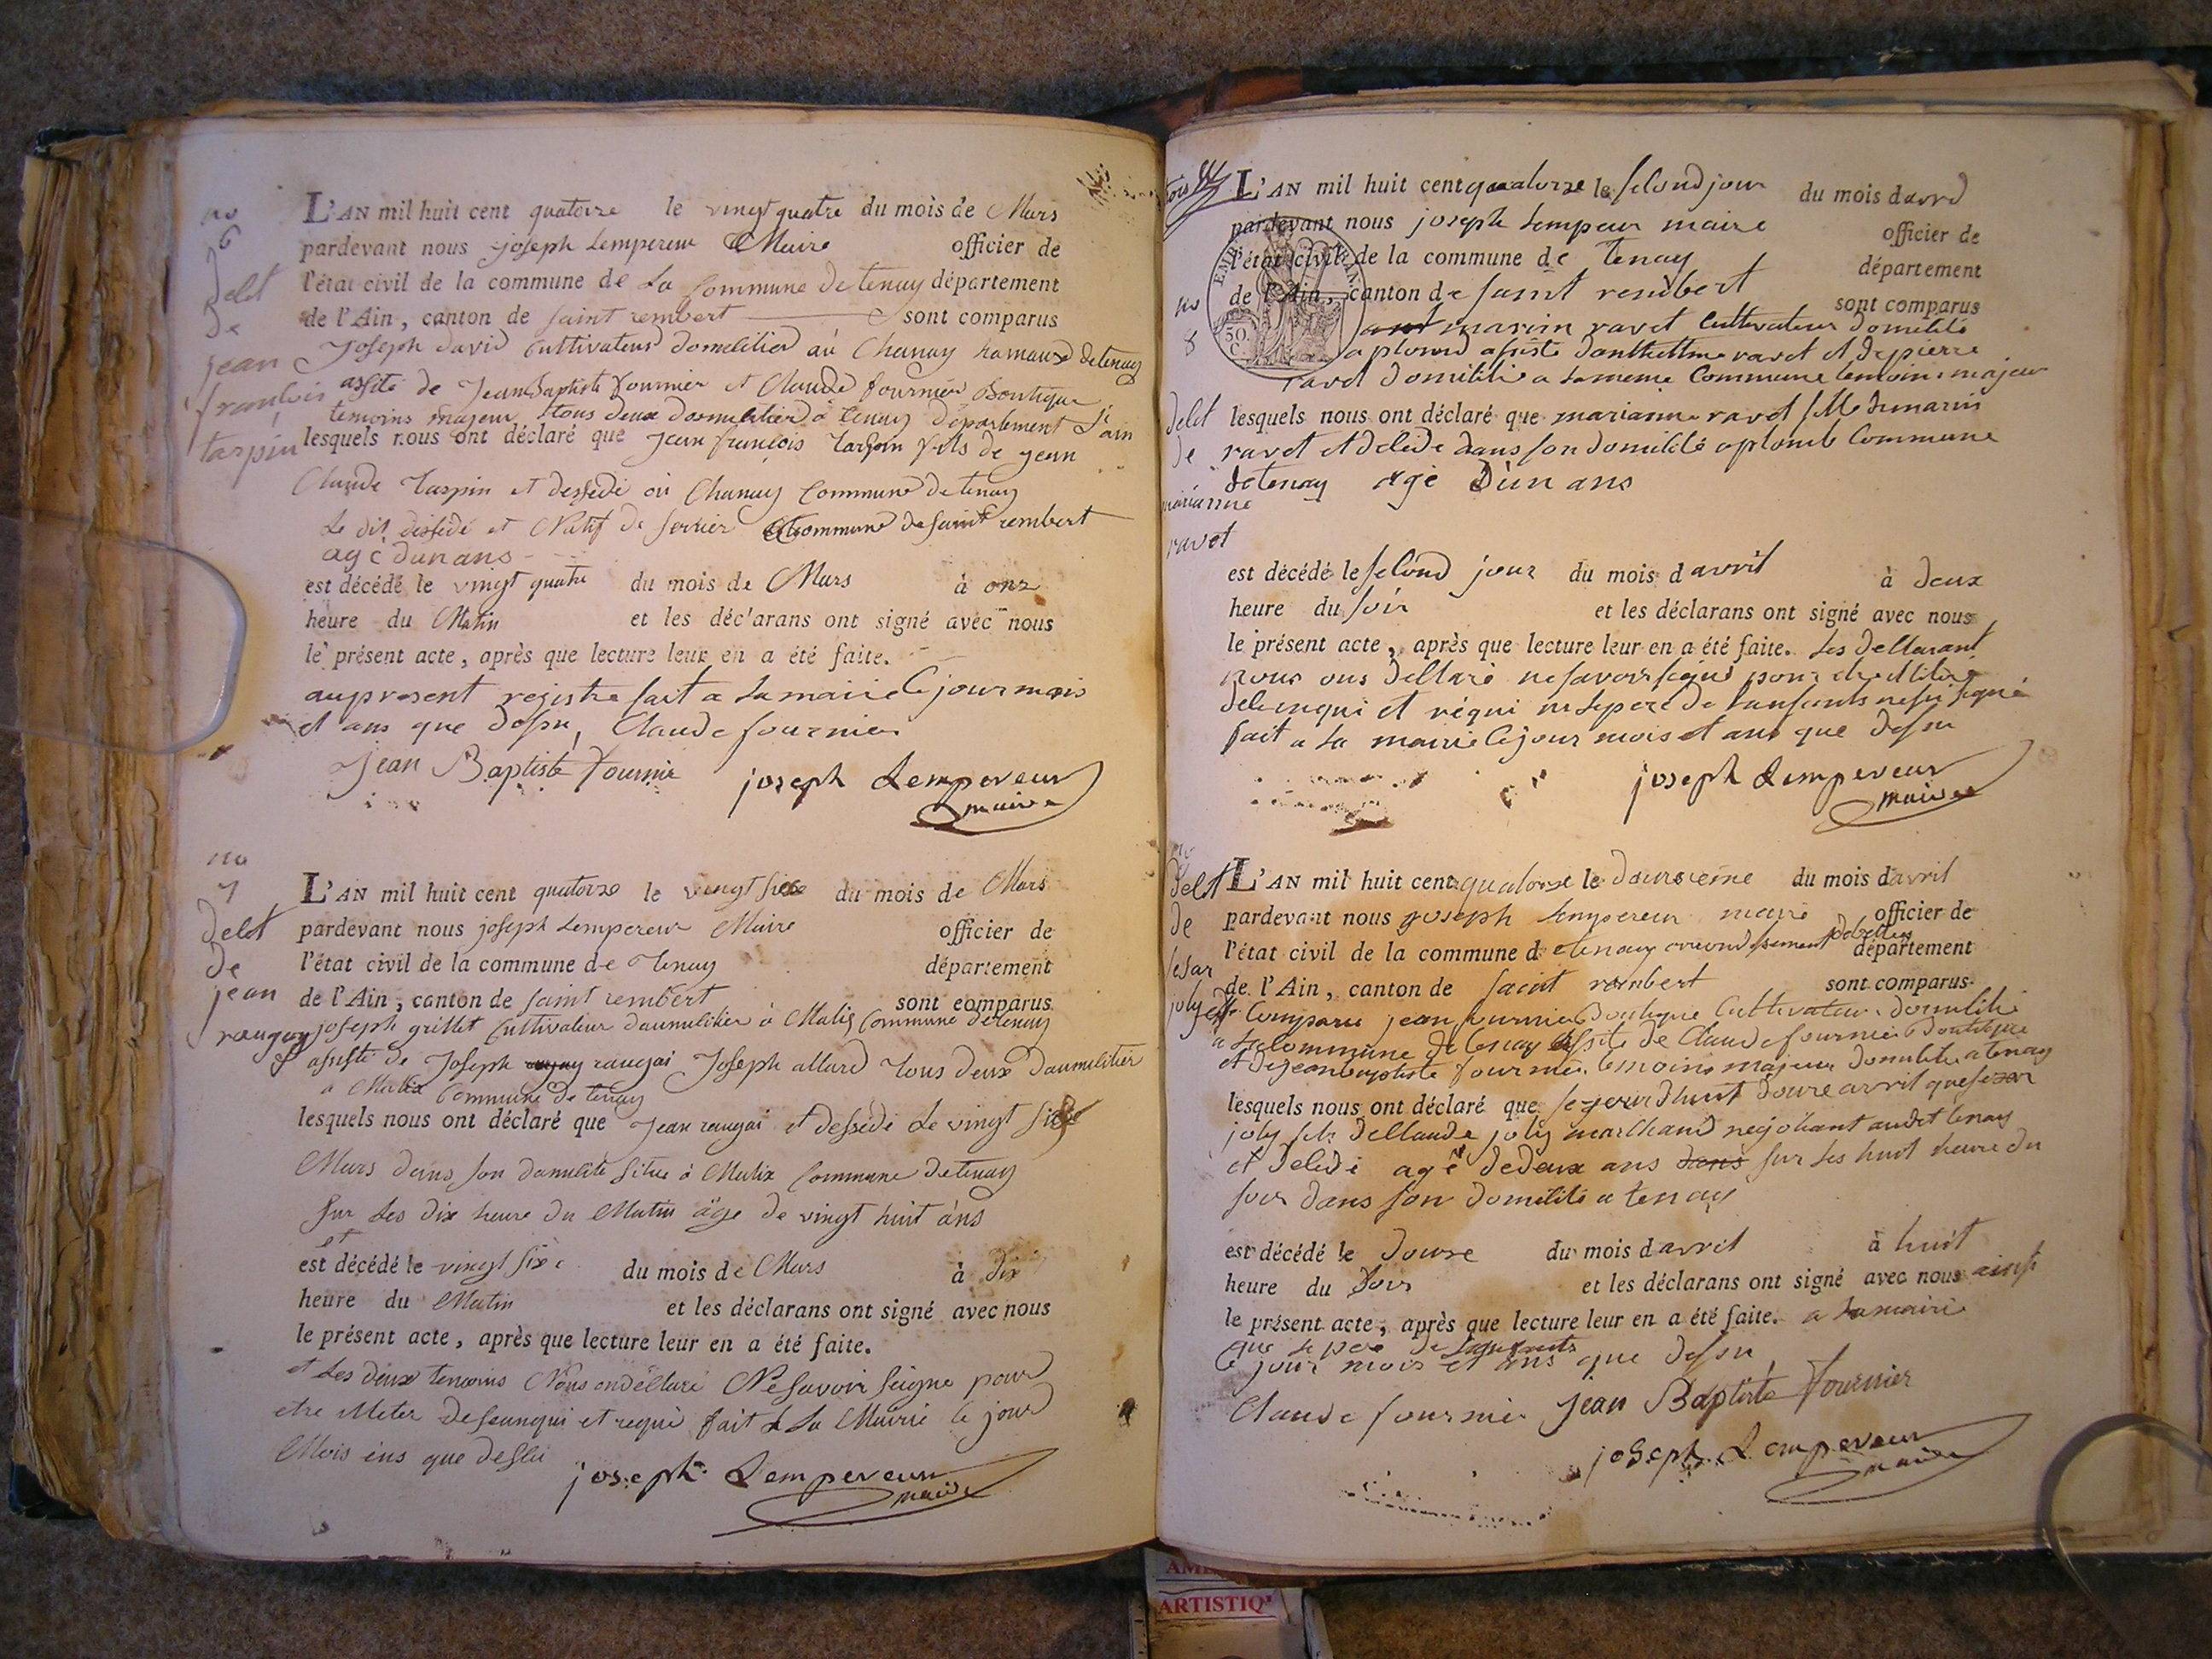 no
6
delet
de
jean
franlois
tarpin
L'AN mil huit cent quatorze le vingt quatre du mois de Mars
pardevant nous joseph Lempereur Maire officier de
l'état civil de la commune de La Commune de tenay département
de l'Ain, canton de saint rembert sont comparus
Joseph david Cultivateur domelilier au Chanay hamaux de tenay
assité de Jean Baptiste fournier et Claude fournier Boutique
temoins majeur tous deux domulitier à tenay département d'ain
lesquels nous ont déclaré que jean françois tarpin fils de jean
Claude tarpin et dessédé au Chanay Commune de tenay
Le dit dessédé et Natif de serrier Commune de saint rembert
agé dun ans
est décédé le vingt quatre du mois de Mars à onz
heure du Matin et les déclarans ont signé avec nous
le présent acte, après que lecture leur en a été faite.
au present registre fait a La mairie le jour mois
et ans que desu, Claude fournier
Jean Baptiste Fournier joseph Lempereur
maire
no
7
delet
de
jean
raugay
L'AN mil huit cent quatorze le vingt sixe du mois de Mars
pardevant nous joseph Lempereur Maire officier de
l'état civil de la commune de Tenay département
de l'Ain, canton de saint rembert sont comparus
joseph grillet Cultivateur daumulitier à Malix Commune de tenay
assisté de Joseph raugai Joseph allard tous deux daumulitier
a Malix Commune de tenay
lesquels nous ont déclaré que Jean raugai et dessédé Le vingt sixe
Mars dans son domulite situé à Malix Commune de tenay
sur Les dix heure du Matin âge de vingt huit ans
et
est décédé le vingt six du mois de Mars à dix
heure du Matin et les déclarans ont signé avec nous
le présent acte, après que lecture leur en a été faite.
et Les deux temoins Nous on déclaré Ne savoir seigne pour
etre Meter de seanqui et requi fait à La Mairie le jour
Mois ens que dessu joseph Lempereur
maire
no
8
delet
de
marianne
ravet
L'AN mil huit cent quatorze le selond jour du mois davril
pardevant nous joseph Lempeur maire officier de
l'état civil de la commune de tenay département
de l'Ain, canton de saint rembert sont comparus
marin ravet Cultivateur domilié
a plomb assisté danthelme ravet et de pierre
ravet domilié a La meme Commune temoins majeur
lesquels nous ont déclaré que marianne ravet fille de marin
ravet et delédé dans son domililé a plomb Commune
de tenay agé d'un ans
est décédé le selond jour du mois d avril à deux
heure du soir et les déclarans ont signé avec nous
le présent acte, après que lecture leur en a été faite. Les dellarant
nous ons dellaré ne savoir signé pour etre
et réqui Le pere de Lanfants
fait a La mairie le jour mois et ans que desu
joseph Lempereur
maire
delet
de
sesar
joly
L'AN mil huit cent quatorze le douzeieme du mois d'avril
pardevant nous joseph Lempereur maire officier de
l'état civil de la commune d etenay arrondissement de belley département
de l'Ain, canton de saint rembert sont comparus
Comparu jean fournier Boutique Cultivateur domilié
a La Commune de tenay assité de Claude fournier Boutique
et de jean baptiste fournier temoins majeur domilié a tenay
lesquels nous ont déclaré que se jourdhuit douze avril que sezar
joly fils de Claude joly marlhand négoliant audit tenay
et delédé agé de deux ans dans sur Les huit heure du
soir dans son domililé a tenay
est décédé le douze du mois d avril à huit
heure du soir et les déclarans ont signé avec nous ainsi
le présent acte, après que lecture leur en a été faite. a La mairie
que Le pere de
le jour mois et ans que desu
Claude fournier Jean Baptiste Fournier
joseph Lempereur
maire
ARTISTIQ